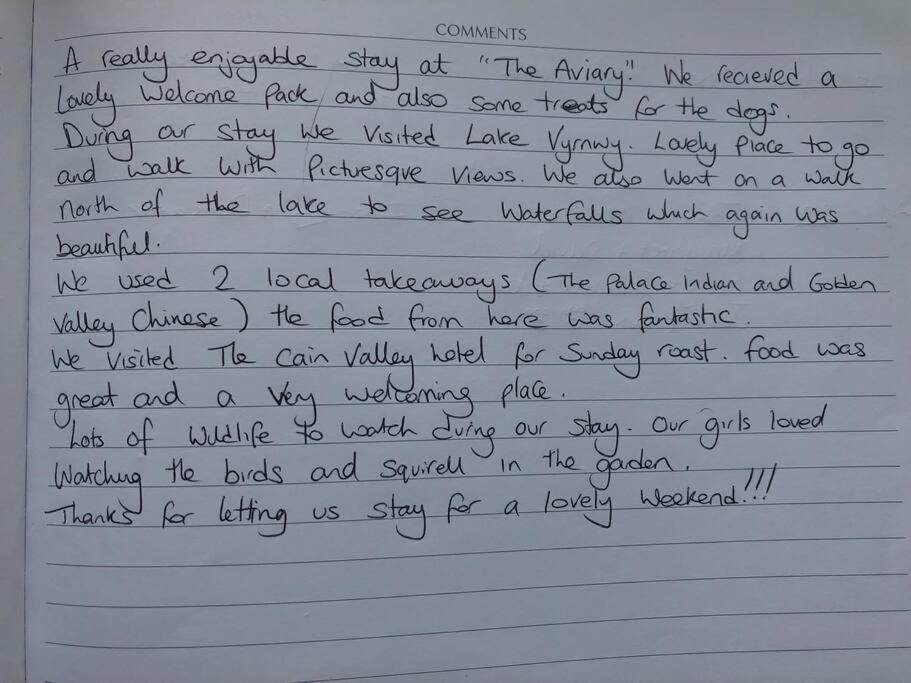 COMMENTS
A really enjoyable stay at "The Aviary". We recieved a
lovely Welcome Pack and also some treats for the dogs.
During our stay we visited Lake Vyrnwy. Lovely place to go
and walk with picturesque views. We also went on a walk
north of the lake to see waterfalls which again was
beautiful.
We used 2 local takeaways (The Palace Indian and Golden
Valley Chinese) the food from here was fantastic.
We visited The Cain Valley hotel for Sunday roast. food was
great and a very welcoming place.
Lots of wildlife to watch during our stay. Our girls loved
watching the birds and squirell in the garden.
Thanks for letting us stay for a lovely weekend!!!